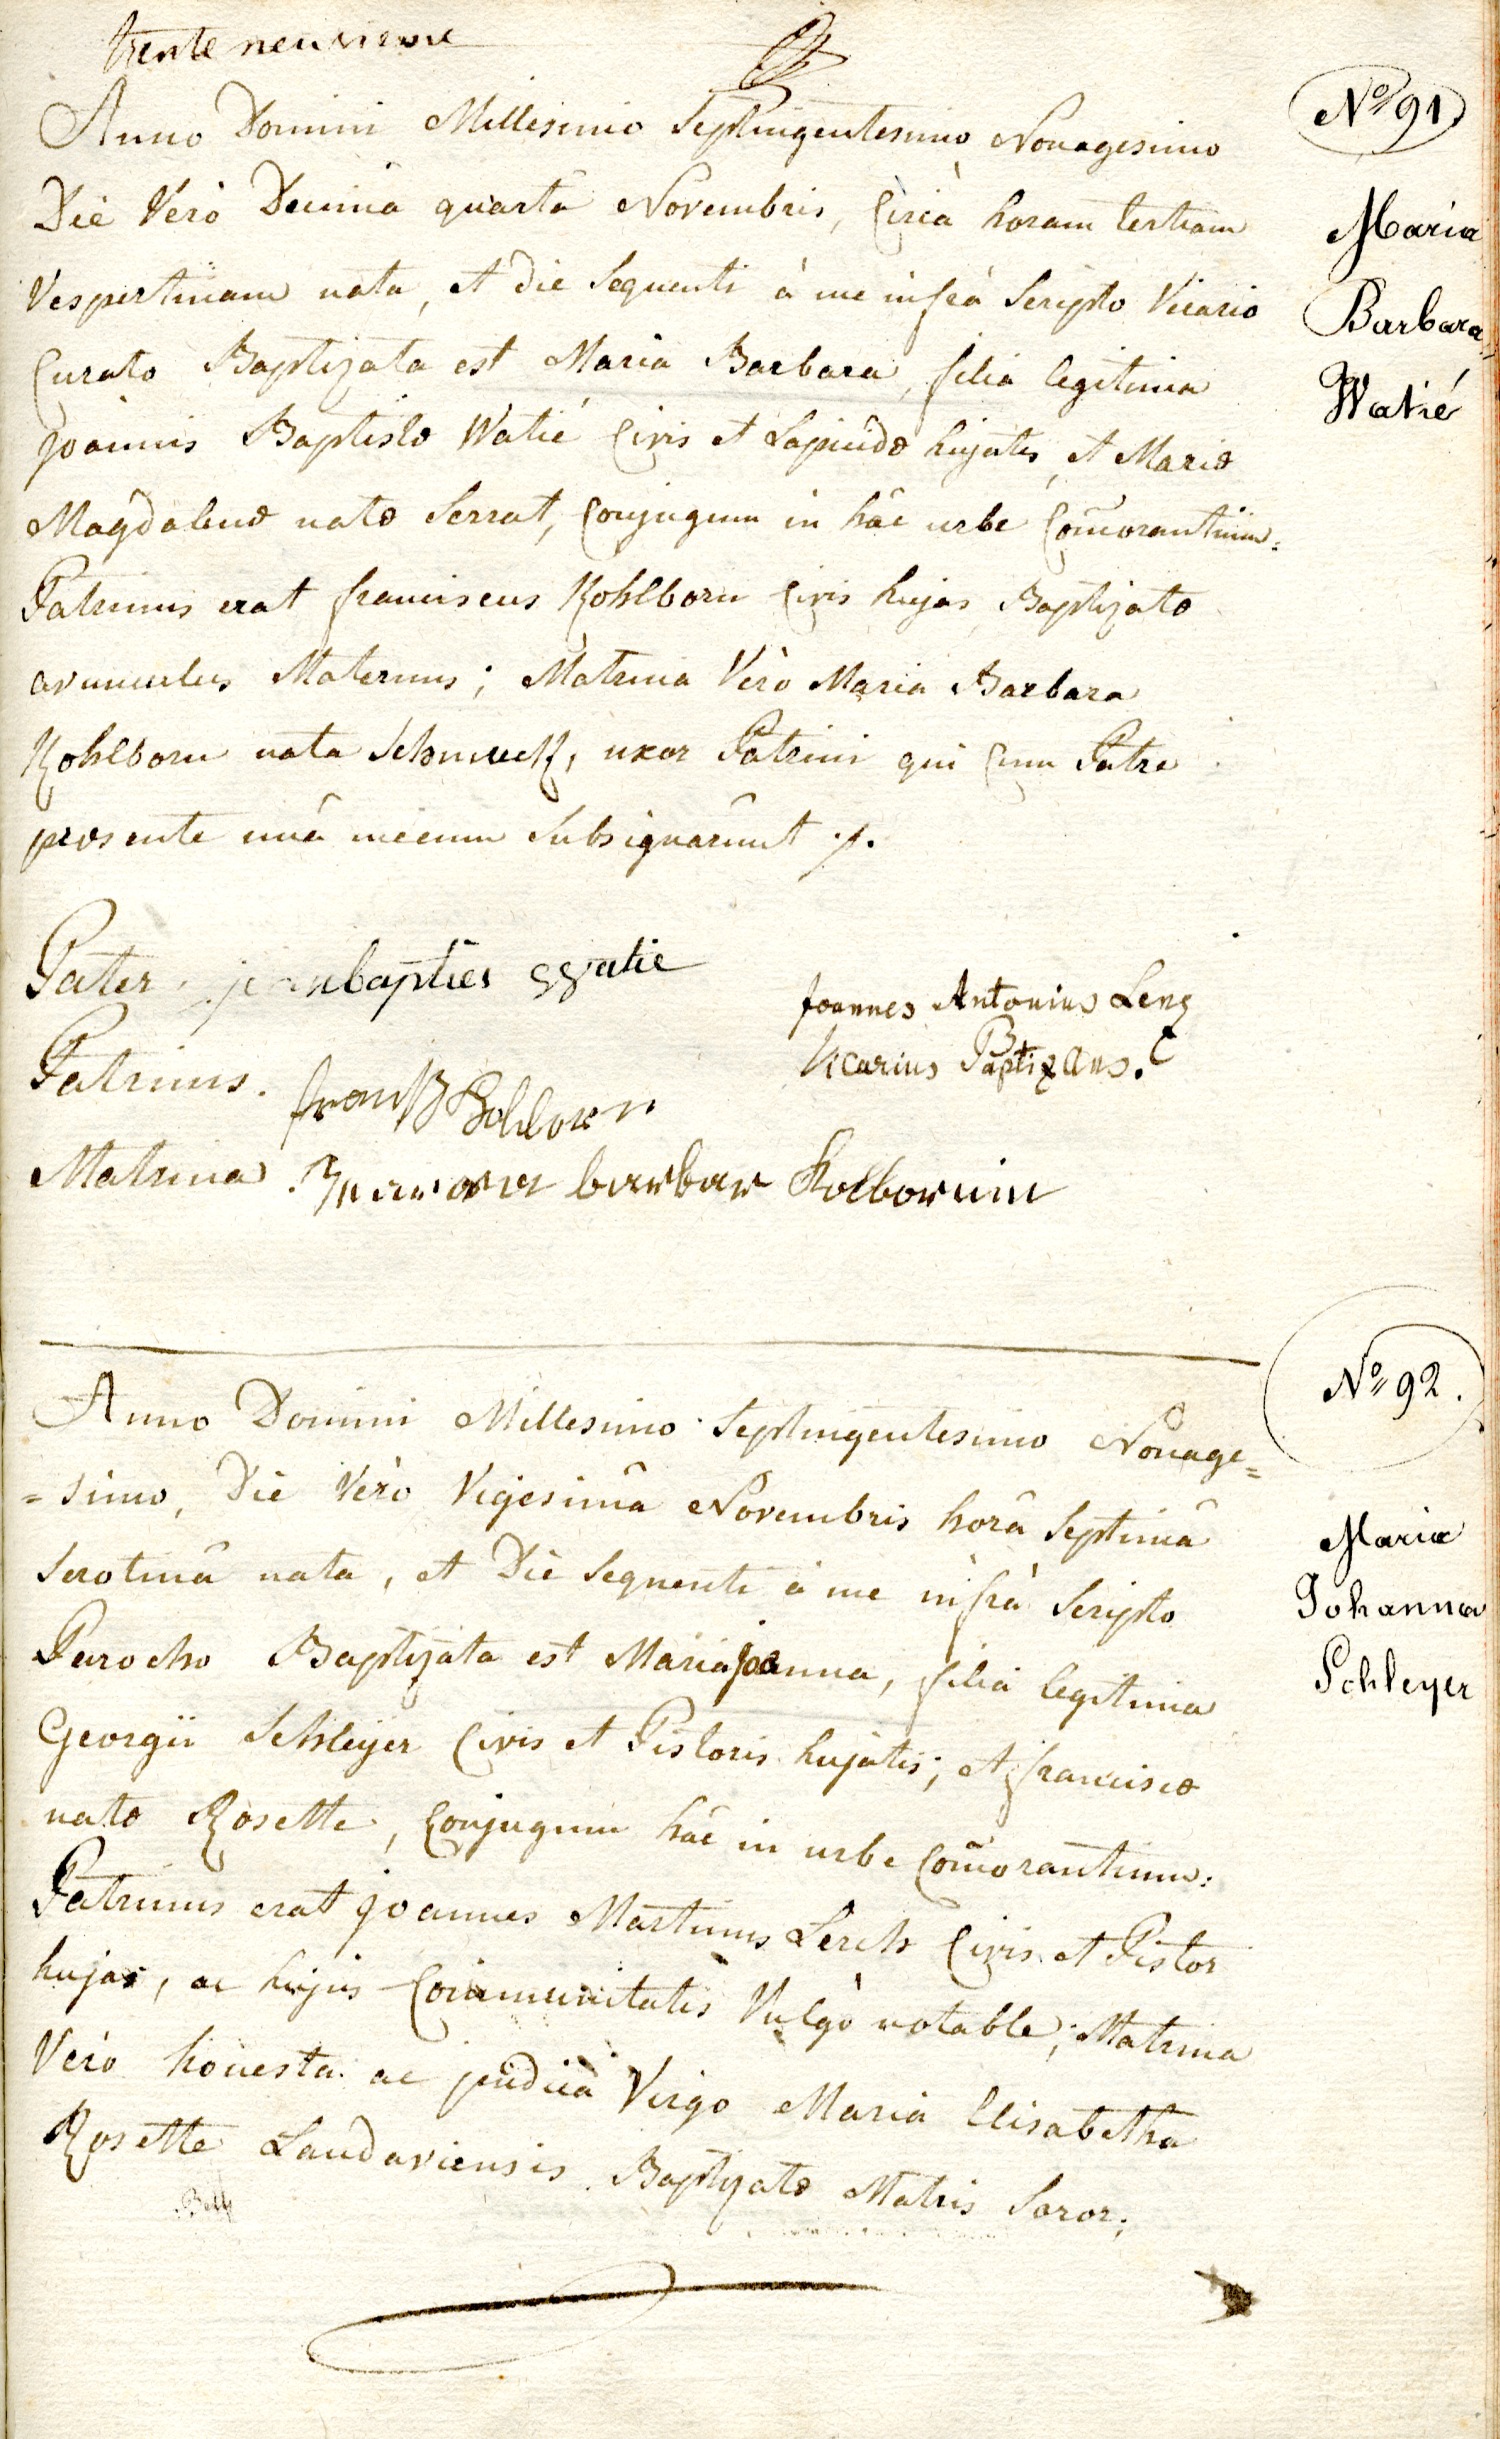 trente neuvieme
Nº 91
Anno Domini Millesimo Septingentesimo Nonagesimo
Die Verò Decimâ quartâ Novembris, Circà horam tertiam
Vespertinam nata, et die Sequenti à me infrà Scripto Vicario
Curato Baptizata est Maria Barbara, filia legitima
Joannis Baptistæ Watié Civis et Lapicidæ hujatis, et Mariæ
Magdalenæ natæ Serrat, Conjugum in hâc urbe Com̃orantium.
Patrinus erat franciscus Kohlborn Civis hujas, Baptizatæ
avunculus Maternus; Matrina Verò Maria Barbara
Kohlborn nata Schmuck, uxor Patrini qui Cum Patre
præsente unà mecum Subsignarunt ./.
Maria
Barbara
Watié
Pater. jeanbapties watie
Joannes Antonius Leng
Vicarius Baptizans.
Patrinus. frantz Kohlborn
Matrina. barbar Kolbornin
Nº 92.
Anno Domini Millesimo Septingentesimo Nonage=
=simo, Die Verò Vigesimâ Novembris horâ Septimâ
Serotinâ nata, et Die Sequenti à me infrà Scripto
Parocho Baptizata est Maria joanna, filia legitima
Georgii Schleÿer Civis et Pistoris hujatis; et franciscæ
natæ Rosette, Conjugum hâc in urbe Com̃orantium.
Patrinus erat Joannes Martinus Lerch Civis et Pistor
hujas, ac hujus Communitatis Vulgò notable; Matrina
Verò honesta ac pudica Virgo Maria Elisabetha
Rosette Landaviensis Baptizatæ Matris Soror;
Maria
Johanna
Schleyer